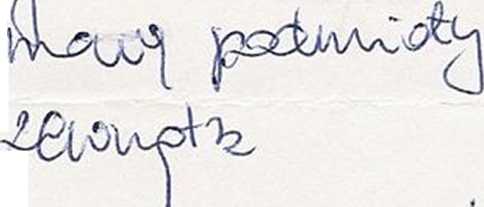 mamy podmioty
zewnętrz